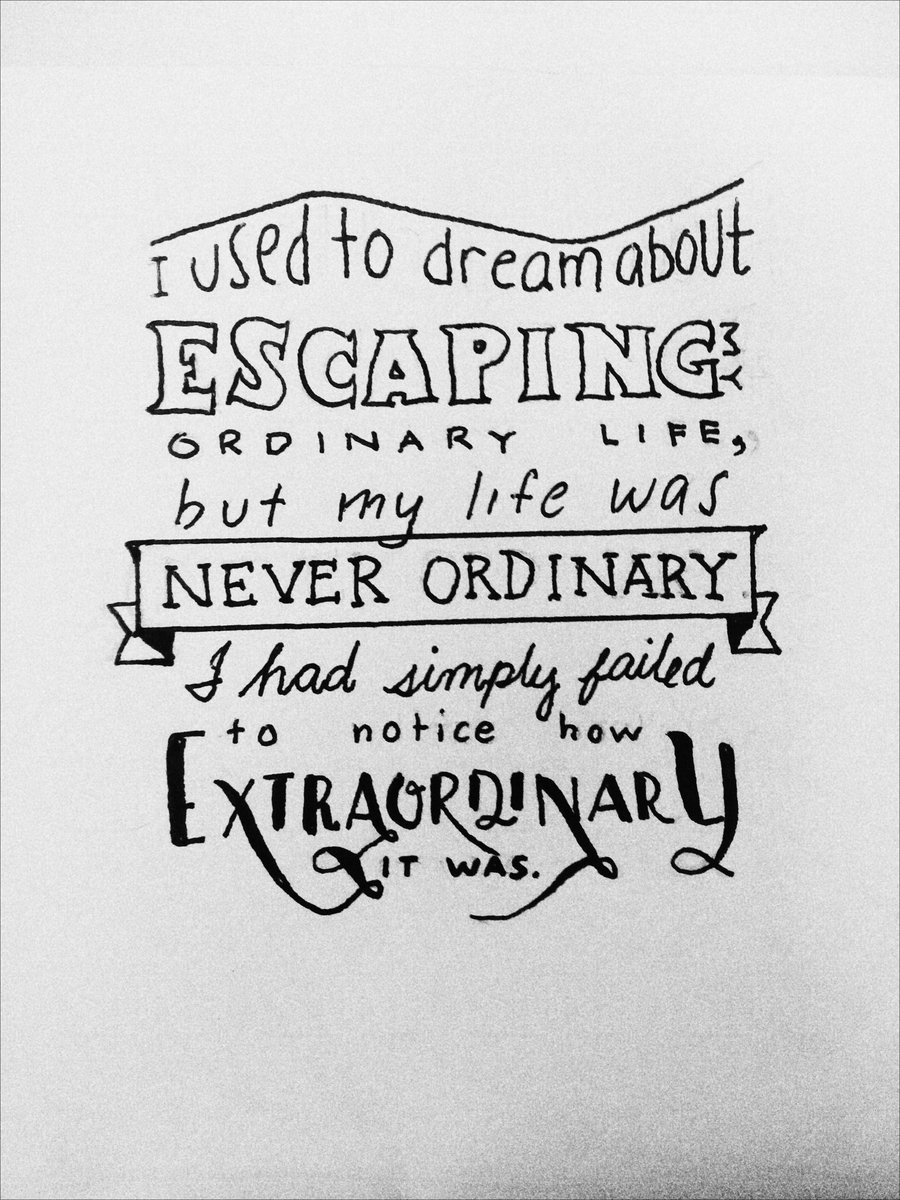 I used to dream about
ESCAPING MY
ORDINARY LIFE,
but my life was
NEVER ORDINARY
I had simply failed
to notice how
EXTRAORDINARY
IT WAS.